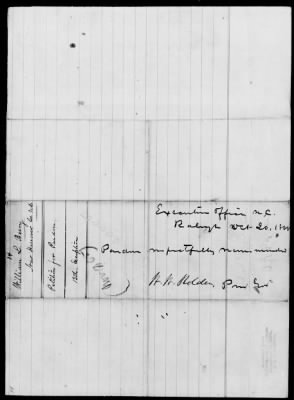 14
William L.
New Hanover Co N.C
Petition for Pardon
13th Exception
Executive Office N.C.
Raleigh Oct 20, 18
Pardon respectfully recommended
W. W. Holden, Prov Gov